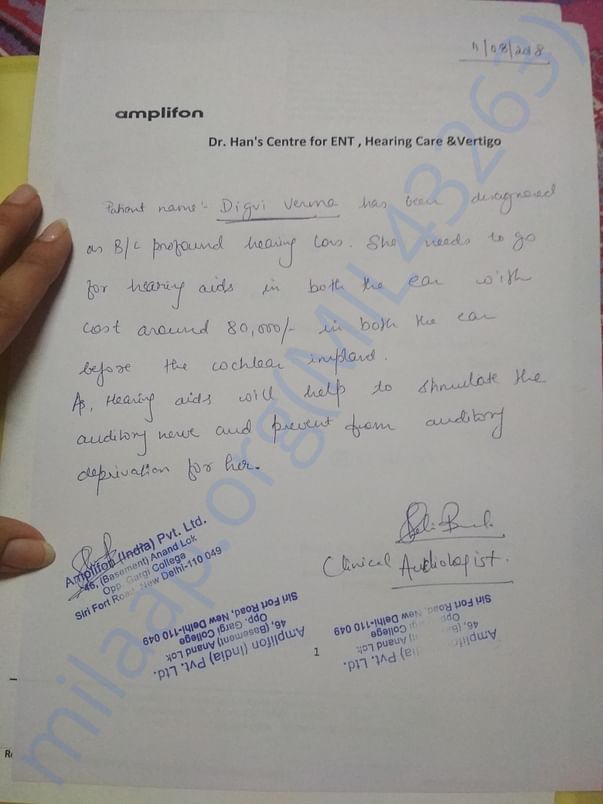 11/08/2018
amplifon
Dr. Han's Centre for ENT , Hearing Care &Vertigo
Patient name:- Digvi Verma has been diagnosed
as B/L profound hearing loss. She needs to go
for hearing aids in both the ear with
cost around 80,000/- in both the ear
before the cochlear implant.
As, Hearing aids will help to stimulate the
auditory nerve and prevent from auditory
deprivation for her.
Clinical Audiologist.
Amplifon (India) Pvt. Ltd.
46, (Basement) Anand Lok
Opp. Gargi College
Siri Fort Road, New Delhi-110 049
Amplifon (India) Pvt. Ltd.
46, (Basement) Anand Lok
Opp. Gargi College
Siri Fort Road, New Delhi-110 049
Pvt. Ltd.
46, Anand Lok
College
Siri Fort Road, New Delhi-110 049
1
milaap.org(MIL43263)